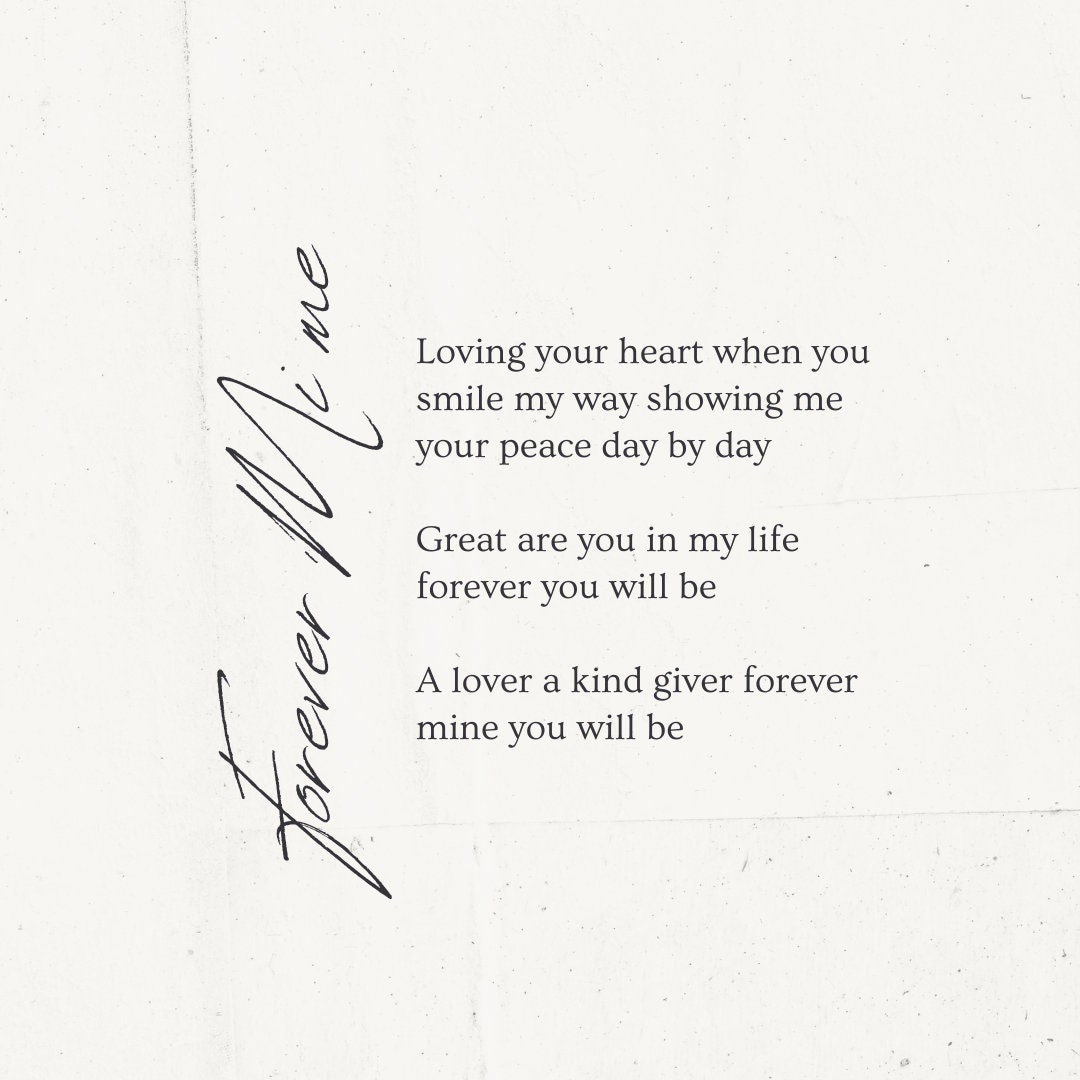 Forever Mine
Loving your heart when you
smile my way showing me
your peace day by day
Great are you in my life
forever you will be
A lover a kind giver forever
mine you will be